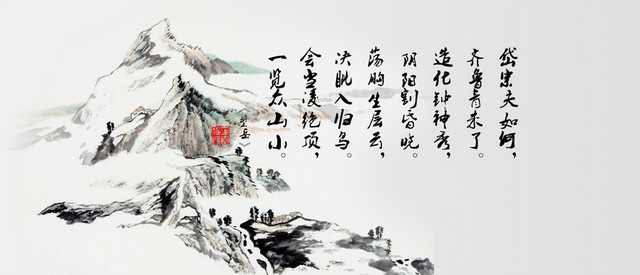 岱宗夫如何，
齐鲁青未了。
造化钟神秀，
阴阳割昏晓。
荡胸生层云，
决眦入归鸟。
会当凌绝顶，
一览众山小。
望岳》